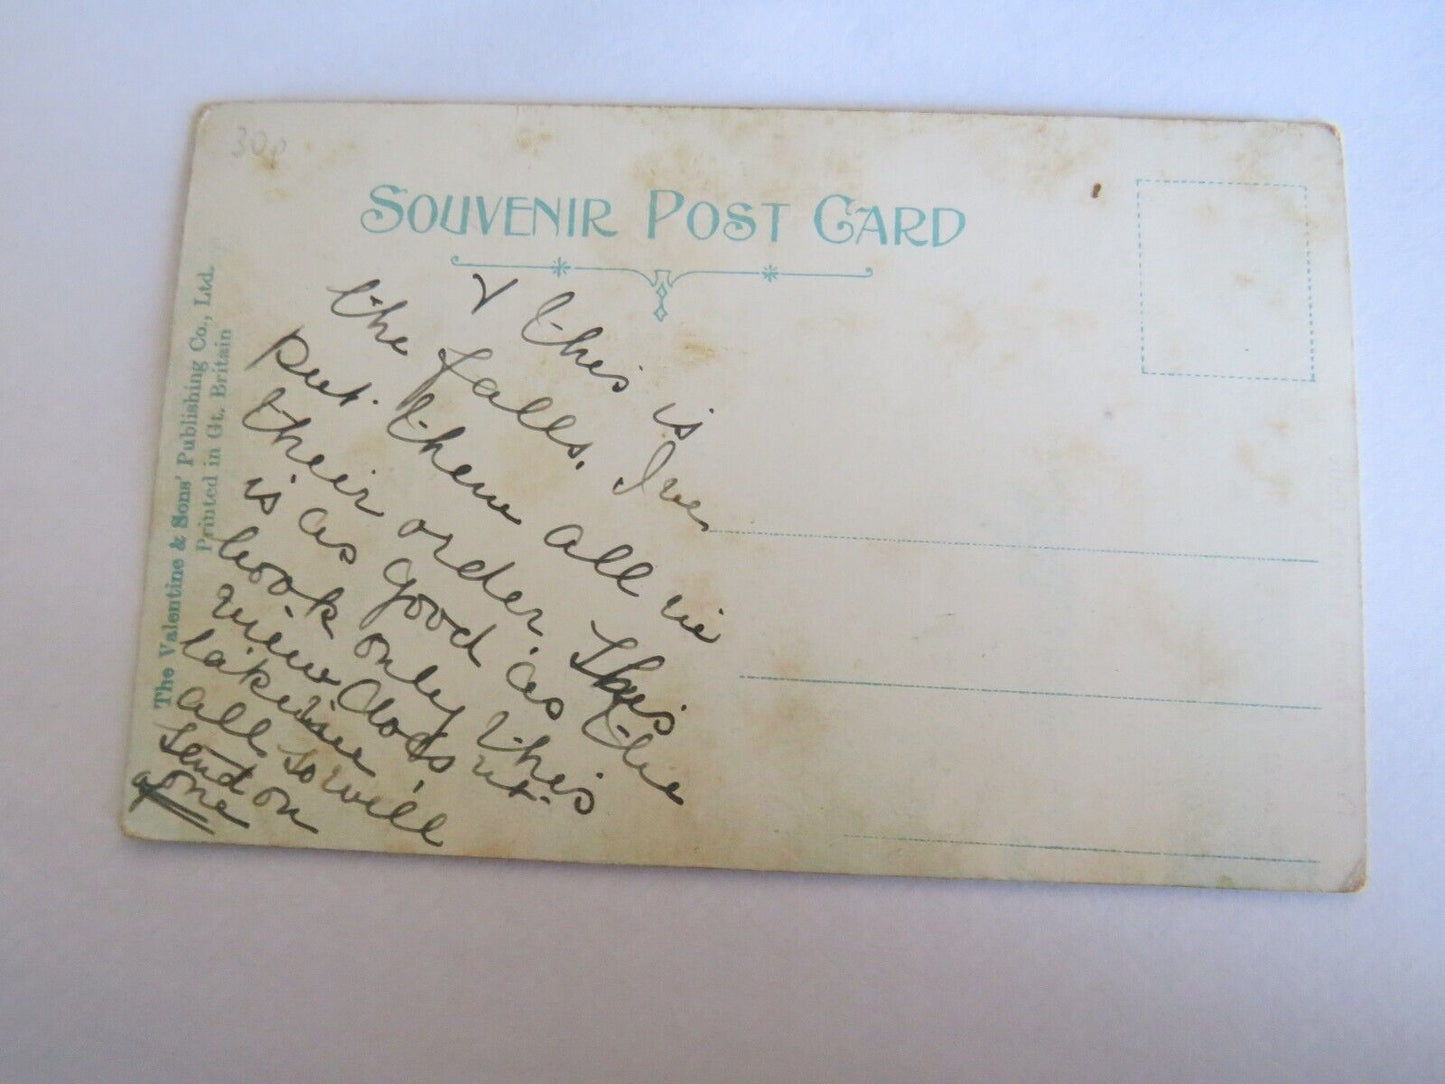 30p
SOUVENIR POST CARD
The Valentine & Sons' Publishing Co., Ltd.
Printed in Gt. Britain
& this is
the falls. Ive
put them all in
their order. This
is as good as the
book only this
view does nt
take
all so will
send on